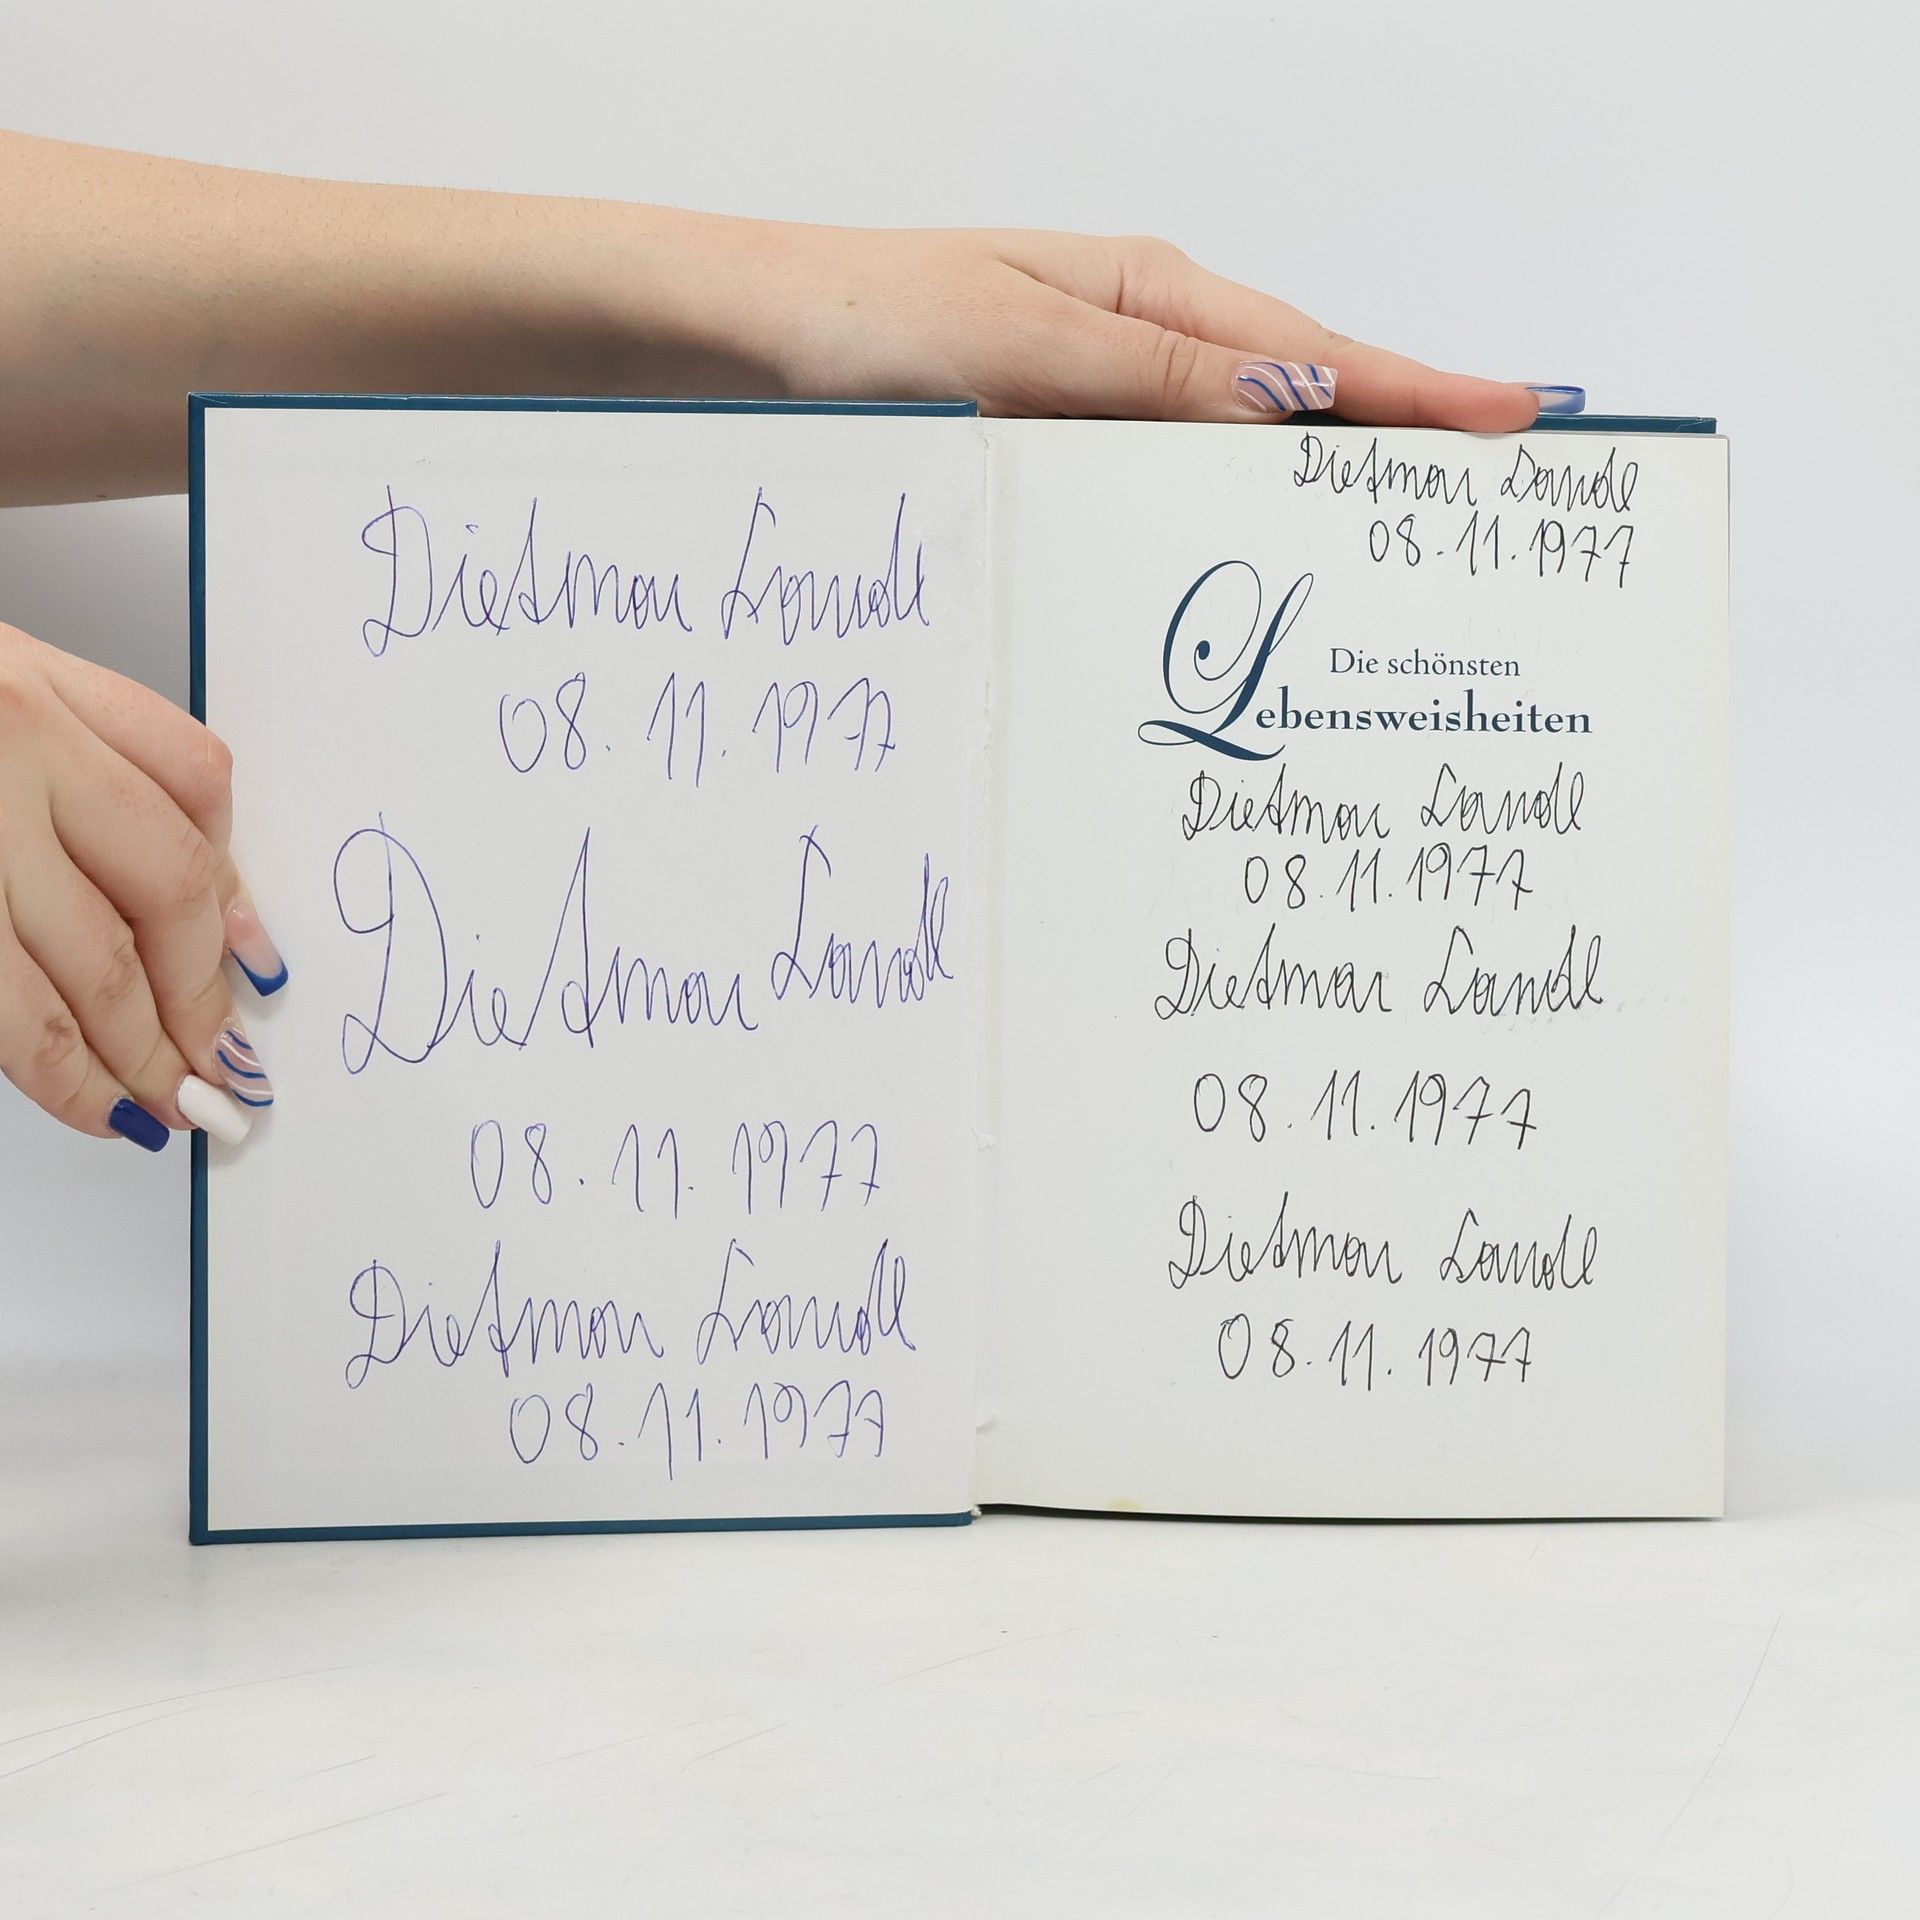 Dietmar Landl
08.11.1977
Dietmar Landl
08.11.1977
Dietmar Landl
08.11.1977
Dietmar Landl
08.11.1977
Die schönsten
Lebensweisheiten
Dietmar Landl
08.11.1977
Dietmar Landl
08.11.1977
Dietmar Landl
08.11.1977